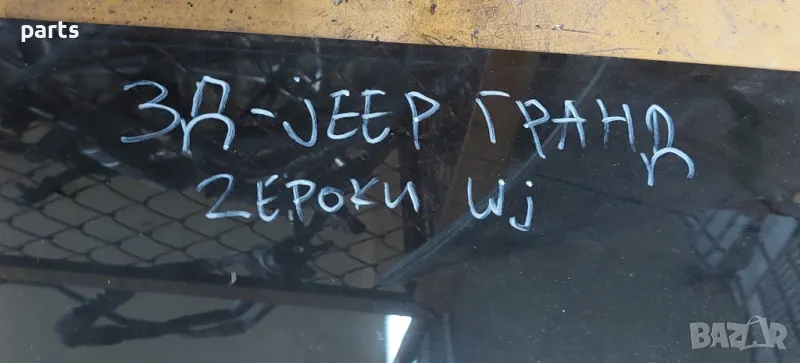 parts
ЗД-JEEP ГРАНД
ЧЕРОКИ Wj
BAZAR